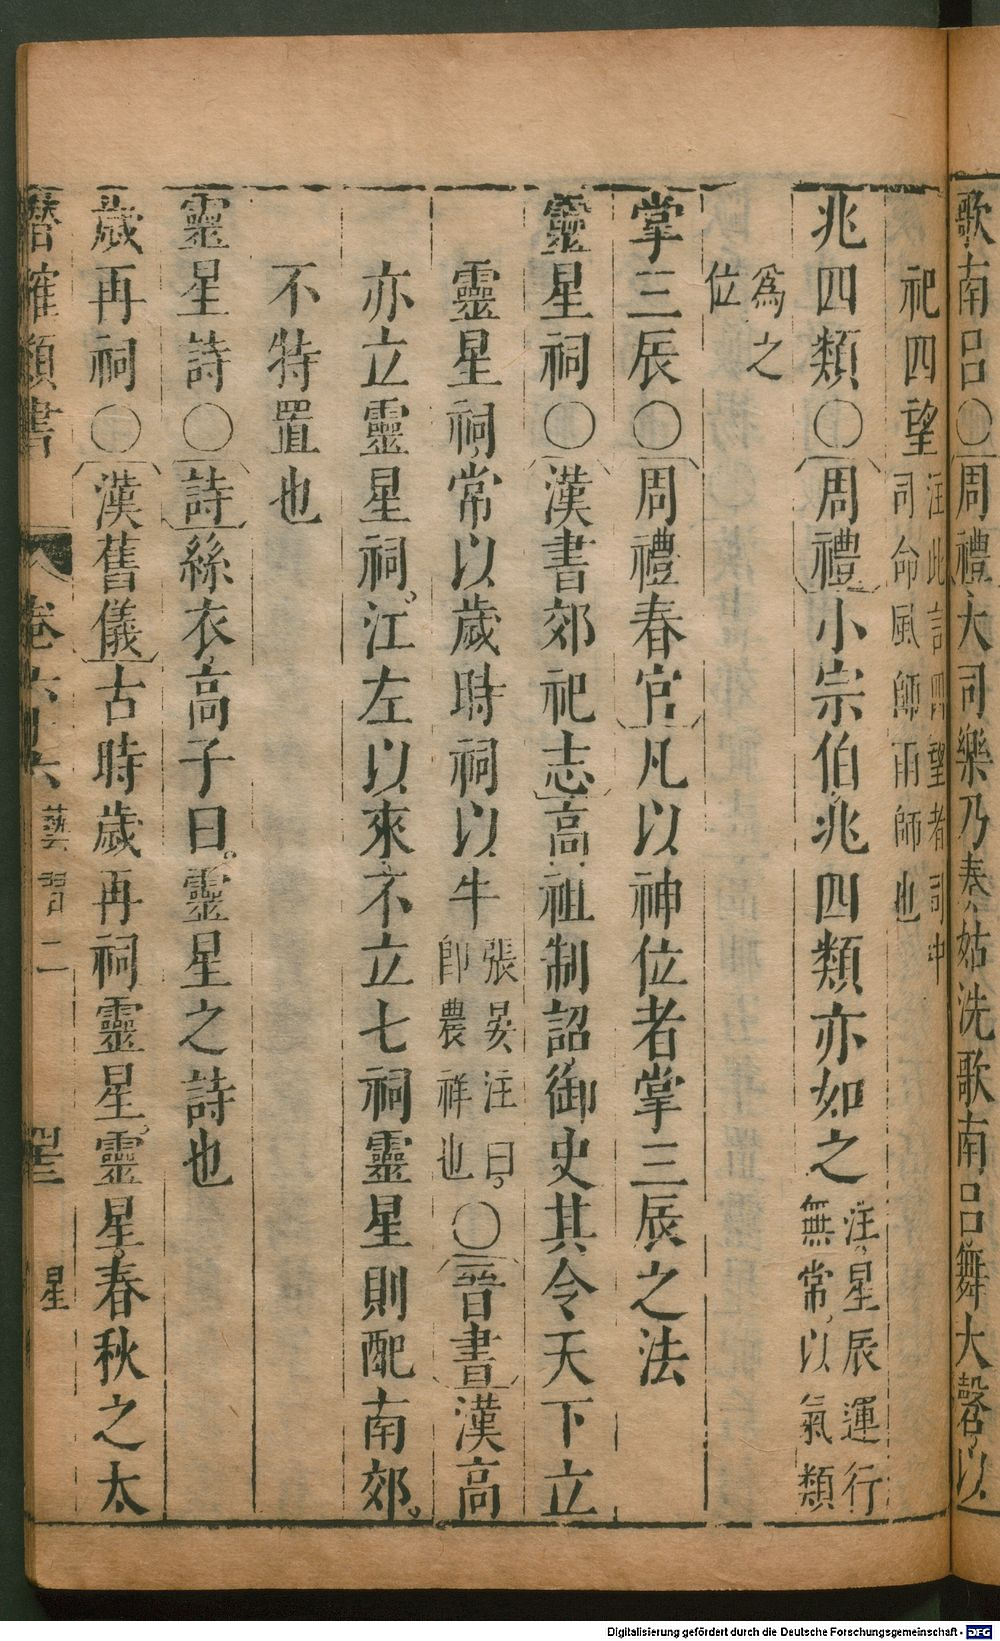 歌南呂〇周禮大司樂乃奏姑洗歌南呂舞大磬以
祀四望注此言四望者司中司命風師雨師也
兆四類〇周禮小宗伯兆四類亦如之注星辰運行無常以氣類
為之位
掌三辰〇周禮春官凡以神位者掌三辰之法
靈星祠〇漢書郊祀志高祖制詔御史其令天下立
靈星祠常以歲時祠以牛張晏注曰即農祥也〇晉書漢高
亦立靈星祠江左以來不立七祠靈星則配南郊
不特置也
靈星詩〇詩絲衣高子曰靈星之詩也
歲再祠〇漢舊儀古時歲再祠靈星靈星春秋之太
潛確類書
卷六十六
藝習二
星
Digitalisierung gefördert durch die Deutsche Forschungsgemeinschaft - DFG